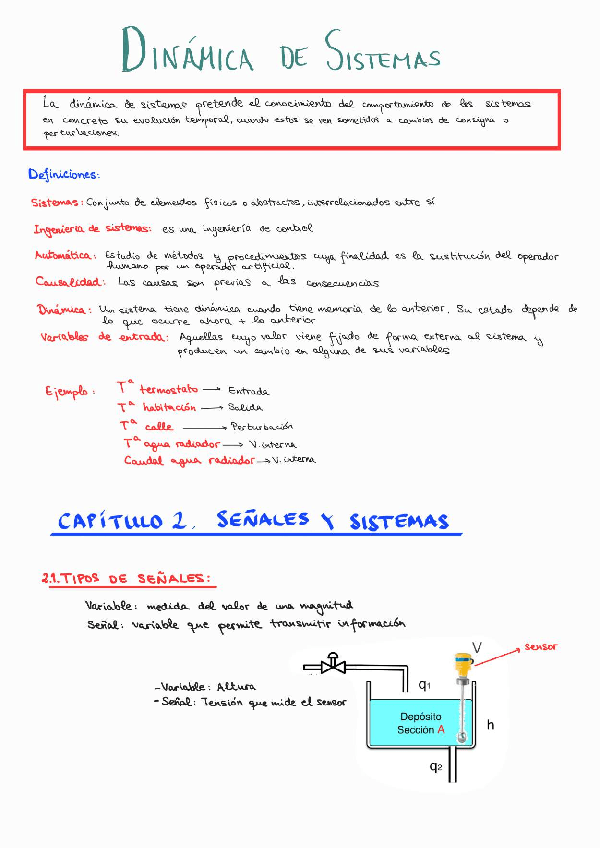 DINÁMICA DE SISTEMAS
La dinámica de sistemas pretende el conocimiento del comportamiento de los sistemas
en concreto su evolución temporal, cuando estos se ven sometidos a cambios de consigna o
perturbaciones.
Definiciones:
Sistemas: Conjunto de elementos físicos o abstractos, interrelacionados entre sí
Ingeniería de sistemas: es una ingeniería de control
Automática: Estudio de métodos y procedimientos cuya finalidad es la sustitución del operador
humano por un operador artificial.
Causalidad: Las causas son previas a las consecuencias
Dinámica: Un sistema tiene dinámica cuando tiene memoria de lo anterior. Su estado depende de
lo que ocurre ahora + lo anterior
Variables de entrada: Aquellas cuyo valor viene fijado de forma externa al sistema y
producen un cambio en alguna de sus variables
Ejemplo: Tª termostato → Entrada
Tª habitación → Salida
Tª calle → Perturbación
Tª agua radiador → V. interna
Caudal agua radiador → V. interna
CAPÍTULO 2. SEÑALES Y SISTEMAS
2.1. TIPOS DE SEÑALES:
Variable: medida del valor de una magnitud
Señal: variable que permite transmitir información
V → sensor
q1
- Variable: Altura
- Señal: Tensión que mide el sensor
Depósito
Sección A
h
q2